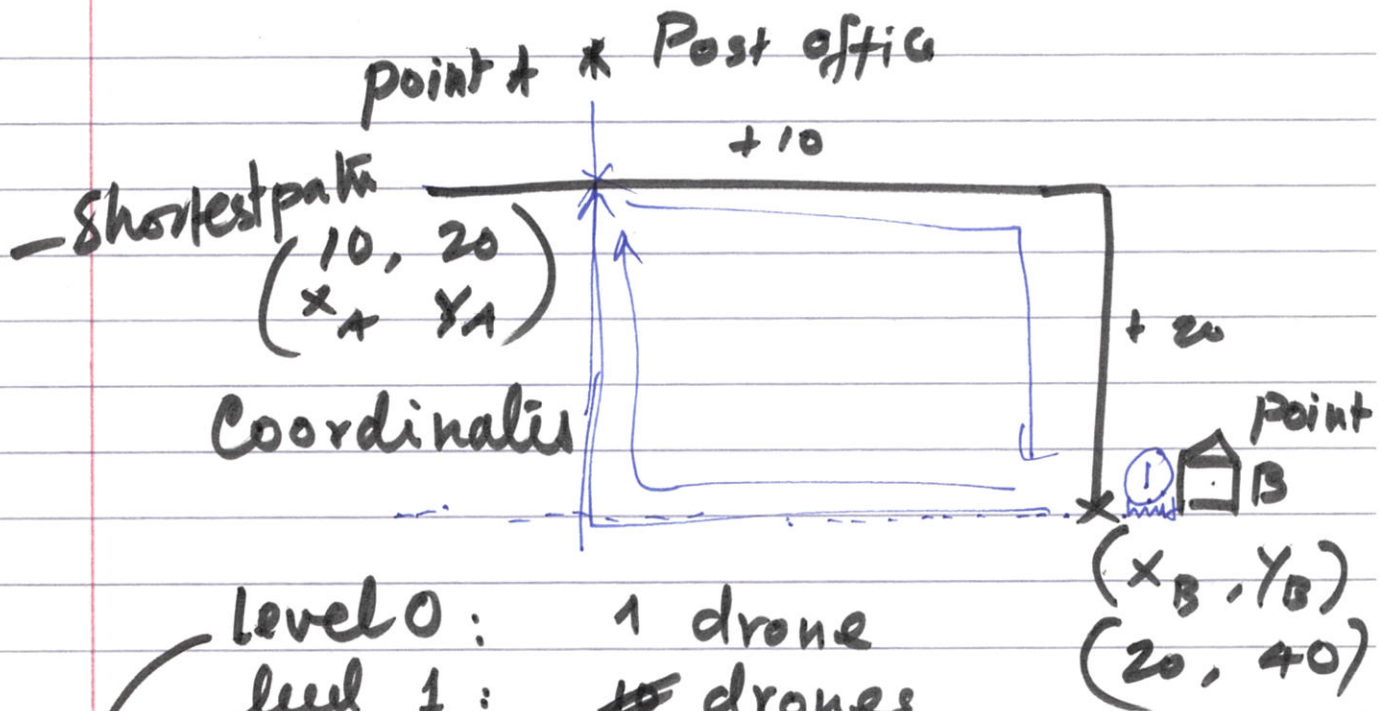 point A * Post offic
+10
- Shortest path
(10, 20
X_A Y_A)
+ 20
Coordinates
point
1
B
(X_B, Y_B)
(20, 40)
level 0 : 1 drone
level 1 : drones